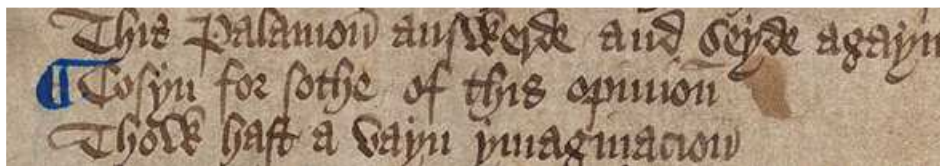 This Palamon answerde and seyde agayn
¶ Cosyn for sothe of this opinion
Thow hast a vayn ymaginacion